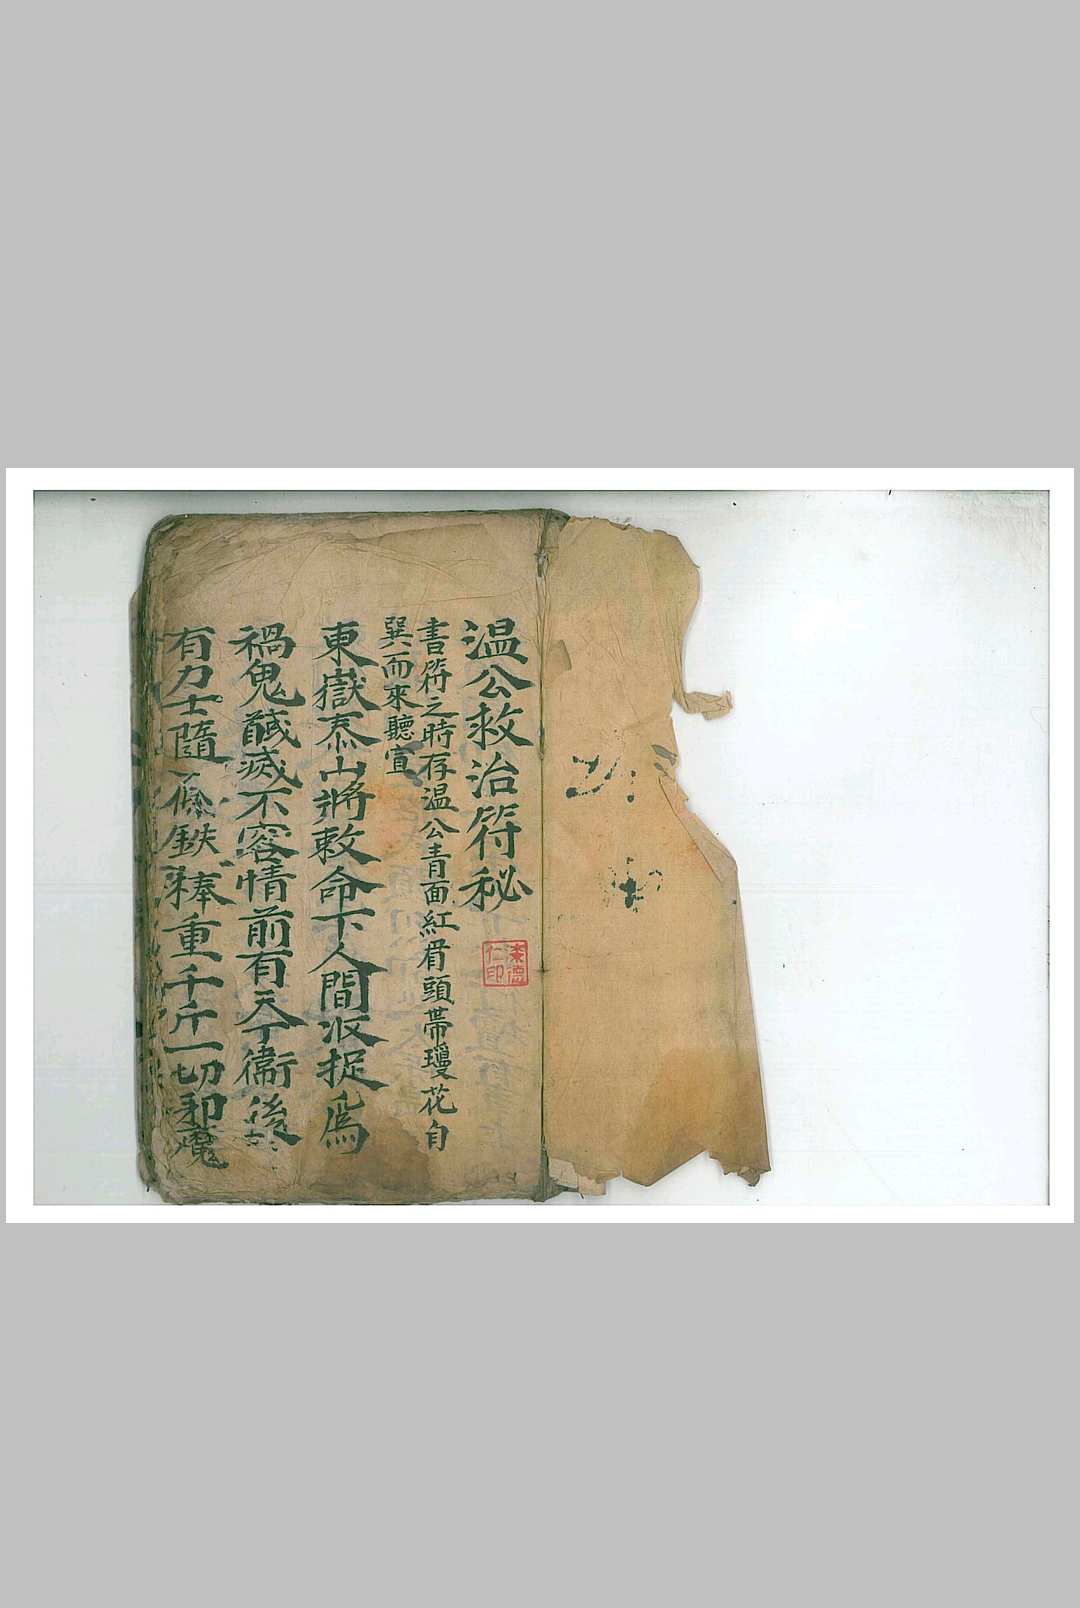 温公救治符秘
書符之時存温公青面紅眉頭帶瓊花自
巽而來聽宣
東嶽泰山將敕命下人間收捉爲
禍鬼馘滅不容情前有天丁衛後
有力士隨一條鉄棒重千斤一切邪魔
德
仁印